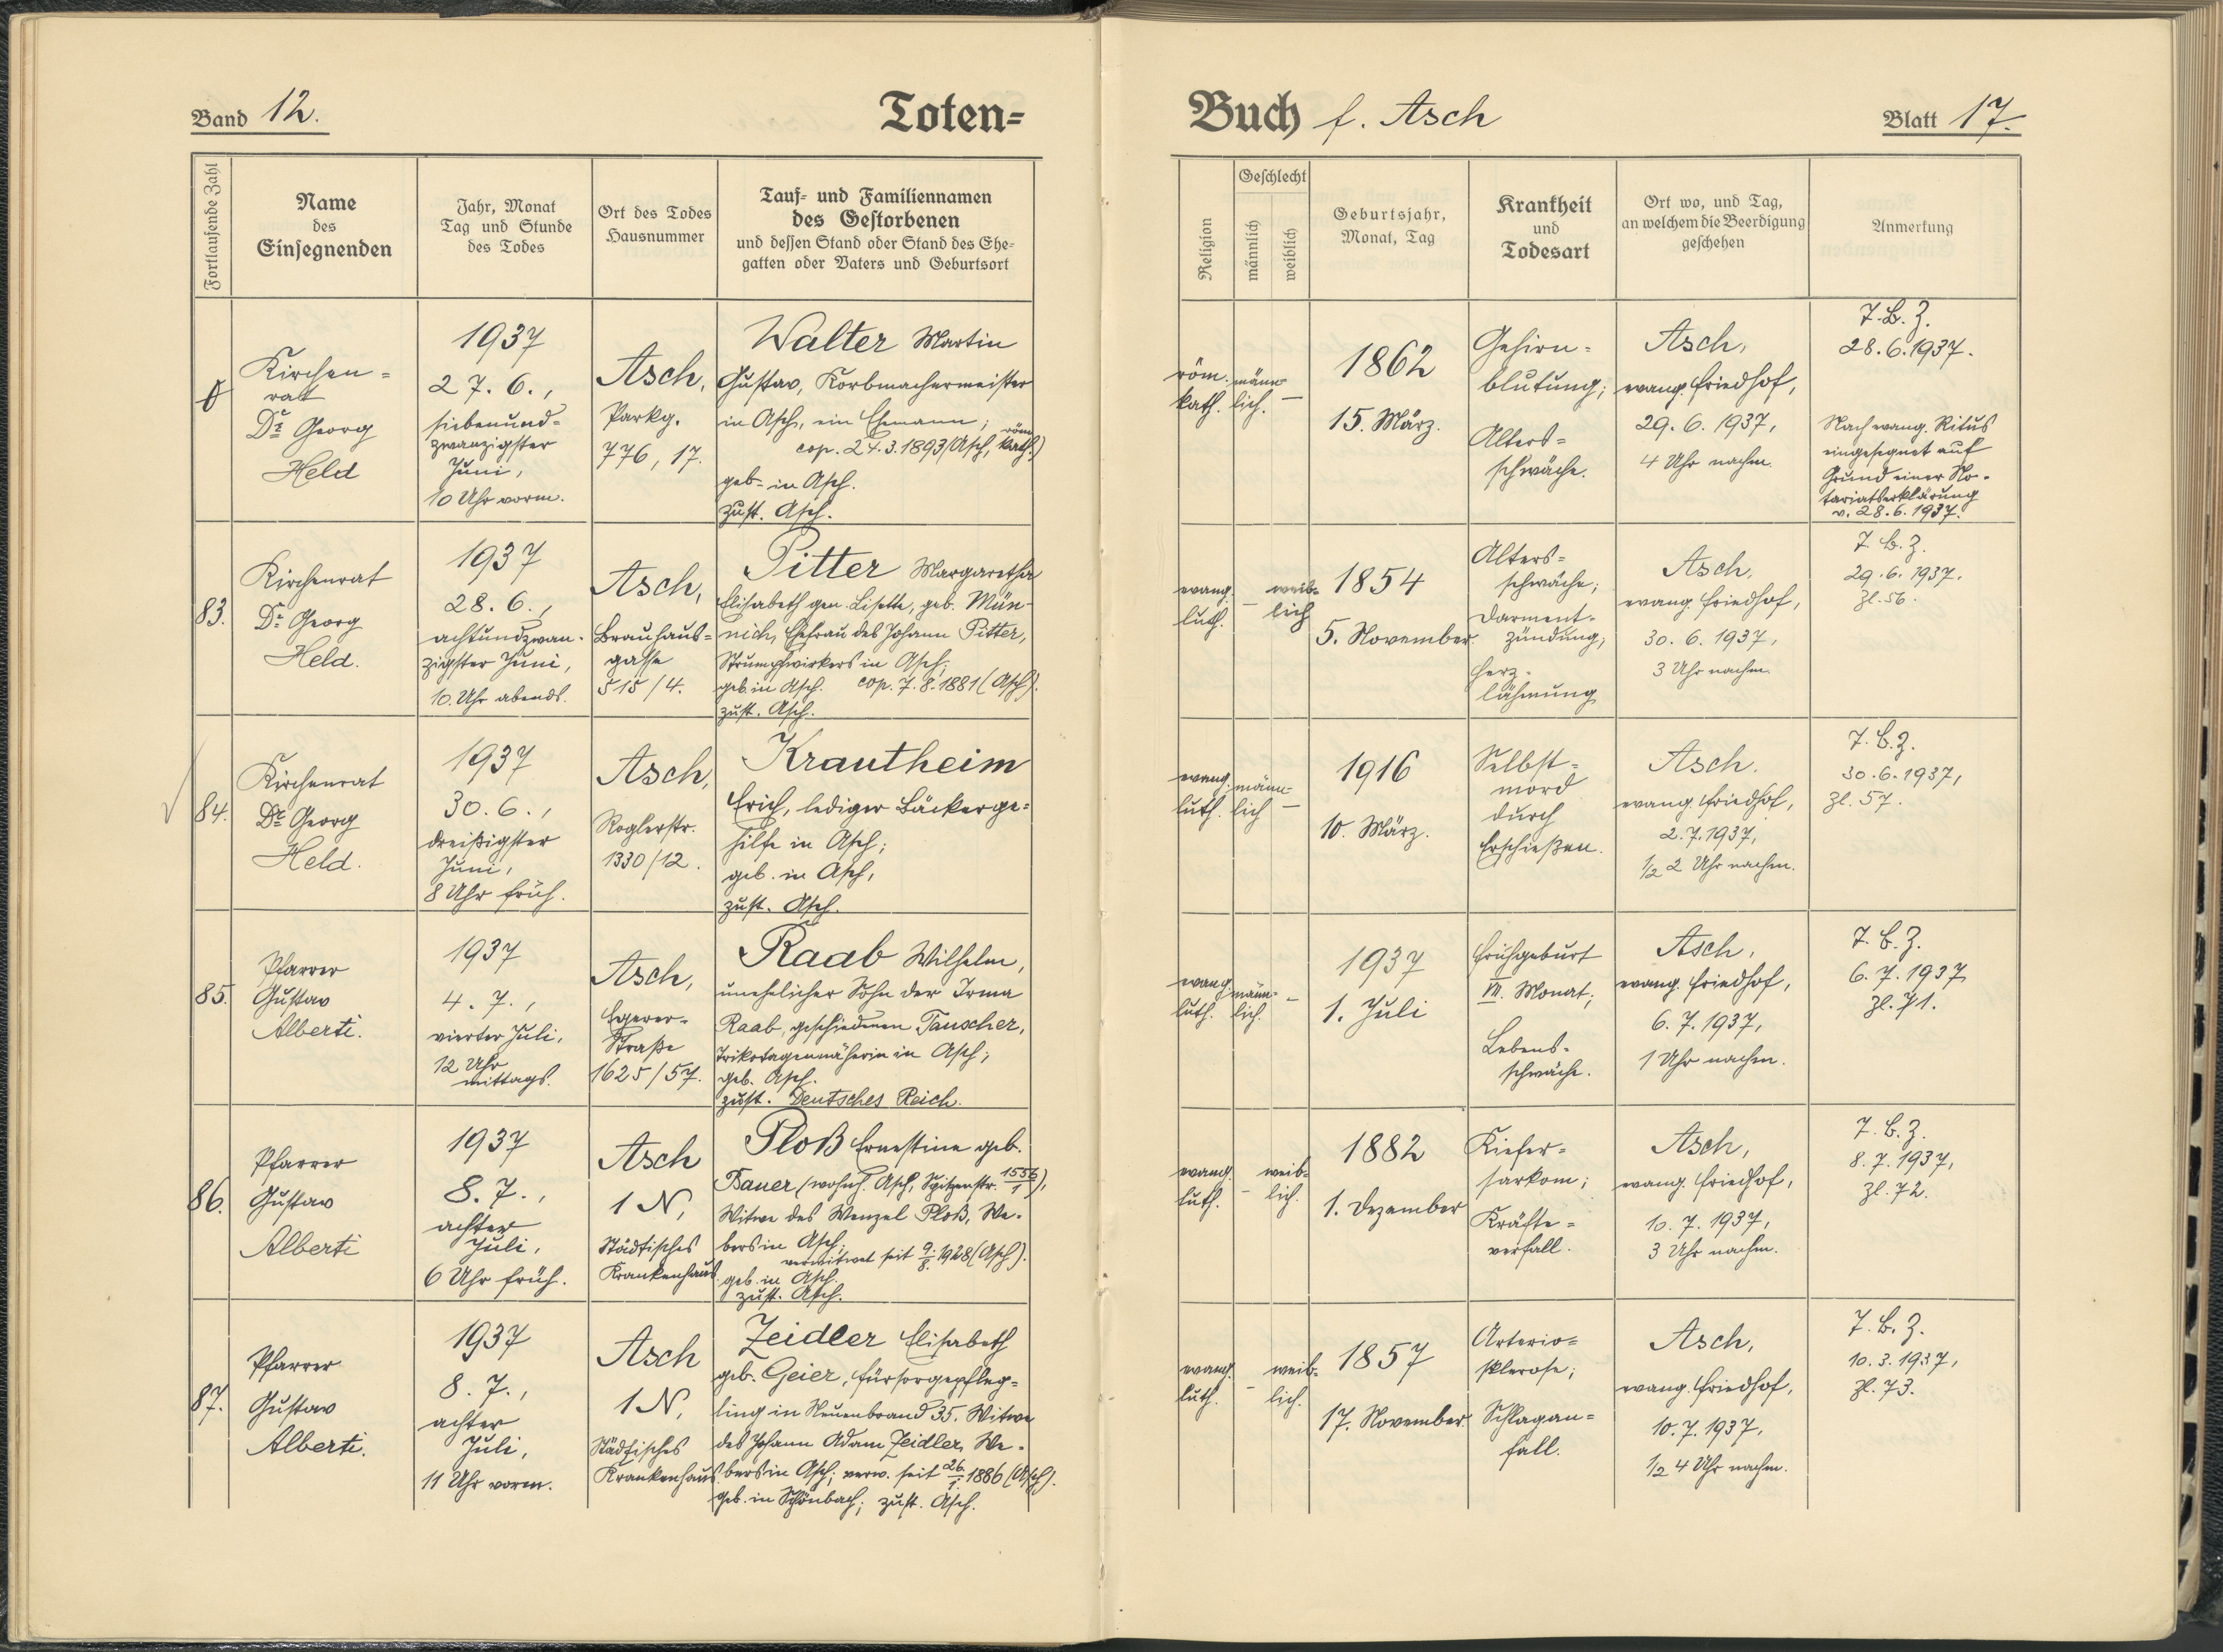 Band 12.
Toten-
Buch f. Asch
Blatt 17.
Fortlaufende Zahl
Name
des
Einsegnenden
Jahr, Monat
Tag und Stunde
des Todes
Ort des Todes
Hausnummer
Tauf- und Familiennamen
des Gestorbenen
und dessen Stand oder Stand des Ehe-
gatten oder Vaters und Geburtsort
Religion
Geschlecht
männlich
weiblich
Geburtsjahr,
Monat, Tag
Krankheit
und
Todesart
Ort wo, und Tag,
an welchem die Beerdigung
geschehen
Anmerkung
Kirchen=
rat
Dr Georg
Held
1937
27. 6.,
siebenund=
zwanzigster
Juni,
10 Uhr vorm.
Asch,
Parkg.
776, 17.
Walter Martin
Gustav, Korbmachermeister
in Asch, ein Ehemann;
cop. 24.3.1893 (Asch, röm. kath.)
geb. in Asch.
zust. Asch.
röm.
kath.
männ-
lich.
–
1862
15. März.
Gehirn=
blutung;
Alters=
schwäche.
Asch,
evang. Friedhof,
29. 6. 1937,
4 Uhr nachm.
T.B.Z.
28.6.1937.
Nach evang. Ritus
eingesegnet auf
Grund einer No-
tariatserklärung
v. 28.6.1937.
83.
Kirchenrat
Dr Georg
Held.
1937
28. 6.,
achtundzwan-
zigster Juni,
10. Uhr abends.
Asch,
Brauhaus=
gasse
515/4.
Pitter Margaretha
Elisabeth gen. Lisette, geb. Mün-
nich, Ehefrau des Johann Pitter,
Strumpfwirkers in Asch;
geb. in Asch. cop. 7.8.1881 (Asch).
zust. Asch.
evang.
luth.
–
weib=
lich
1854
5. November.
Alters=
schwäche;
Darment-
zündung;
Herz-
lähmung
Asch,
evang. Friedhof,
30. 6. 1937,
3 Uhr nachm.
T.B.Z.
29.6.1937.
Zl. 56.
84.
Kirchenrat
Dr Georg
Held.
1937
30. 6.,
dreißigster
Juni,
8 Uhr früh.
Asch,
Roglerstr.
1330/12.
Krautheim
Erich, lediger Bäckerge=
hilfe in Asch;
geb. in Asch,
zust. Asch.
evang.
luth.
männ-
lich
–
1916
10. März.
Selbst=
mord
durch
Erschießen.
Asch.
evang. Friedhof,
2.7.1937,
1/2 2 Uhr nachm.
T.B.Z.
30.6.1937,
Zl. 57.
85.
Pfarrer
Gustav
Alberti.
1937
4. 7.,
vierter Juli,
12 Uhr
mittags.
Asch,
Egerer-
Straße
1625/57.
Raab Wilhelm,
unehelicher Sohn der Irma
Raab, geschiedenen Tauscher,
Trikotagennäherin in Asch;
geb. Asch.
zust. Deutsches Reich.
evang.
luth.
männ-
lich.
–
1937
1. Juli
Frühgeburt
VII. Monat;
Lebens-
schwäche.
Asch,
evang. Friedhof,
6. 7. 1937,
1 Uhr nachm.
T.B.Z.
6. 7. 1937
Zl. 71.
86.
Pfarrer
Gustav
Alberti
1937
8. 7.,
achter
Juli,
6 Uhr früh.
Asch
1 N,
Städtisches
Krankenhaus.
Ploß Ernestine geb.
Bauer (wohnh. Asch, Spitzenstr. 1556/1),
Witwe des Wenzel Ploß, We-
bers in Asch;
verwitwet seit 9./8. 1928 (Asch).
geb. in Asch.
zust. Asch.
evang.
luth.
–
weib=
lich.
1882
1. Dezember
Kiefer=
sarkom;
Kräfte=
verfall.
Asch,
evang. Friedhof,
10. 7. 1937,
3 Uhr nachm.
T.B.Z.
8. 7. 1937,
Zl. 72.
87.
Pfarrer
Gustav
Alberti.
1937
8. 7.,
achter
Juli,
11 Uhr vorm.
Asch
1 N,
Städtisches
Krankenhaus
Zeidler Elisabeth
geb. Geier, Fürsorgepfleg=
ling in Neuenbrand 35. Witwe
des Johann Adam Zeidler, We-
bers in Asch; verw. seit 26./1. 1886 (Asch).
geb. in Schönbach; zust. Asch.
evang.
luth.
–
weib=
lich.
1857
17. November.
Arterio=
sklerose;
Schlagan=
fall.
Asch,
evang. Friedhof,
10. 7. 1937,
1/2 4 Uhr nachm.
T.B.Z.
10. 3. 1937,
Zl. 73.